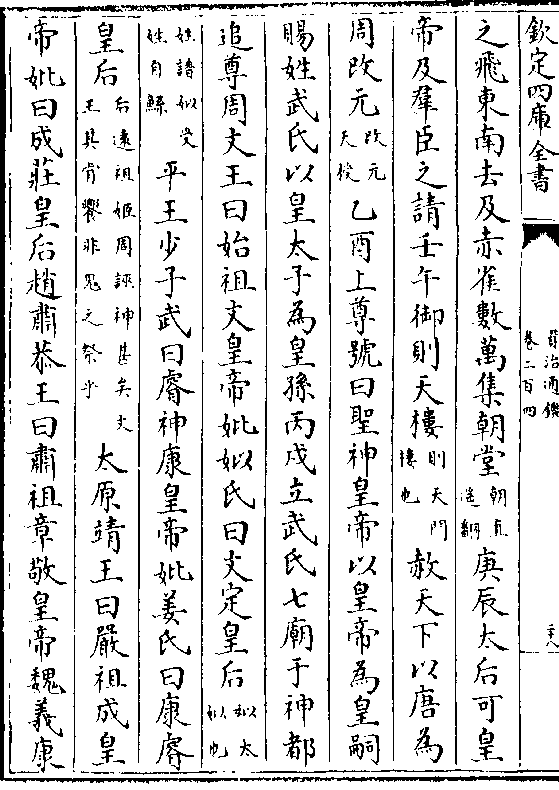 欽定四庫全書
資治通鑑
卷二百四
之飛東南去及赤雀數萬集朝堂朝直遙翻庚辰太后可皇
帝及羣臣之請壬午御則天樓則天門樓也赦天下以唐為
周改元改元天授乙酉上尊號曰聖神皇帝以皇帝為皇嗣
賜姓武氏以皇太子為皇孫丙戌立武氏七廟于神都
追尊周文王曰始祖文皇帝妣姒氏曰文定皇后姒太姒也
姓譜姒受姓自鯀平王少子武曰睿神康皇帝妣姜氏曰康睿
皇后后遠祖姬周誣神甚矣文王其肯饗非鬼之祭乎太原靖王曰嚴祖成皇
帝妣曰成莊皇后趙肅恭王曰肅祖章敬皇帝魏義康